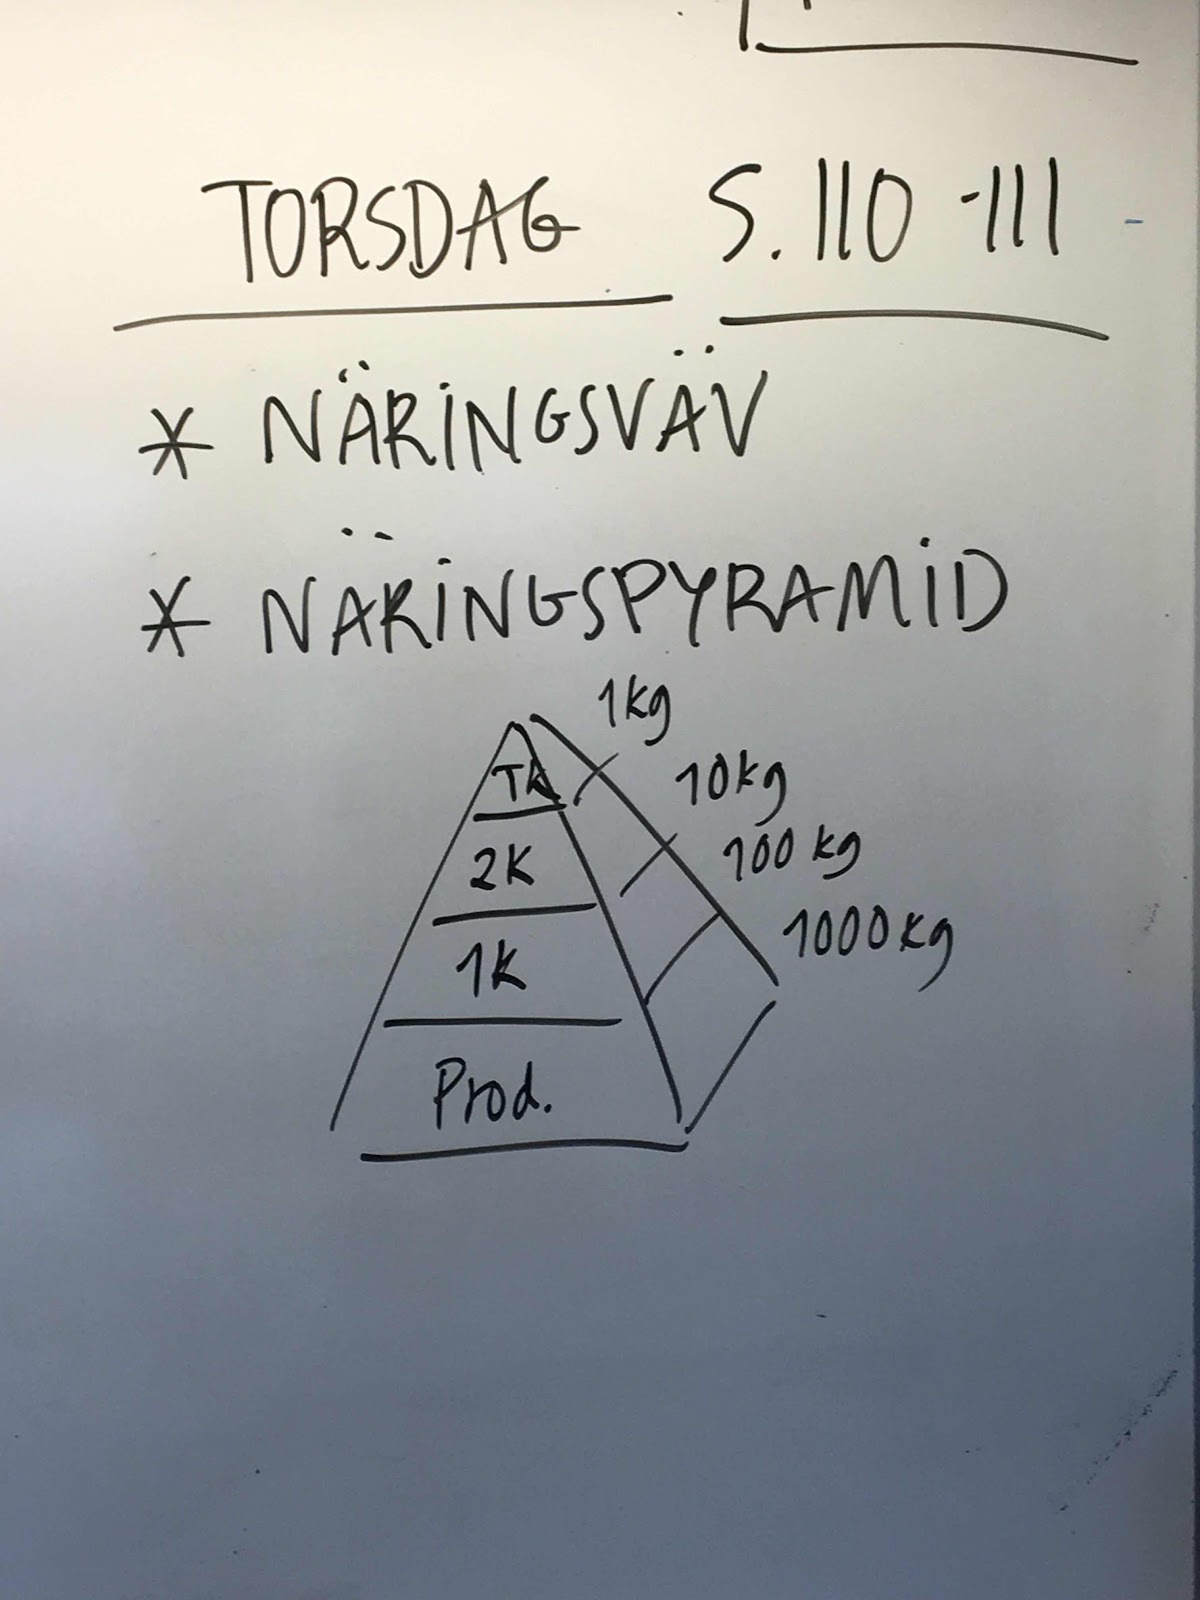 TORSDAG S. 110-111
* NÄRINGSVÄV
* NÄRINGSPYRAMID
1kg
TK 10kg
2K 100kg
1K 1000kg
Prod.